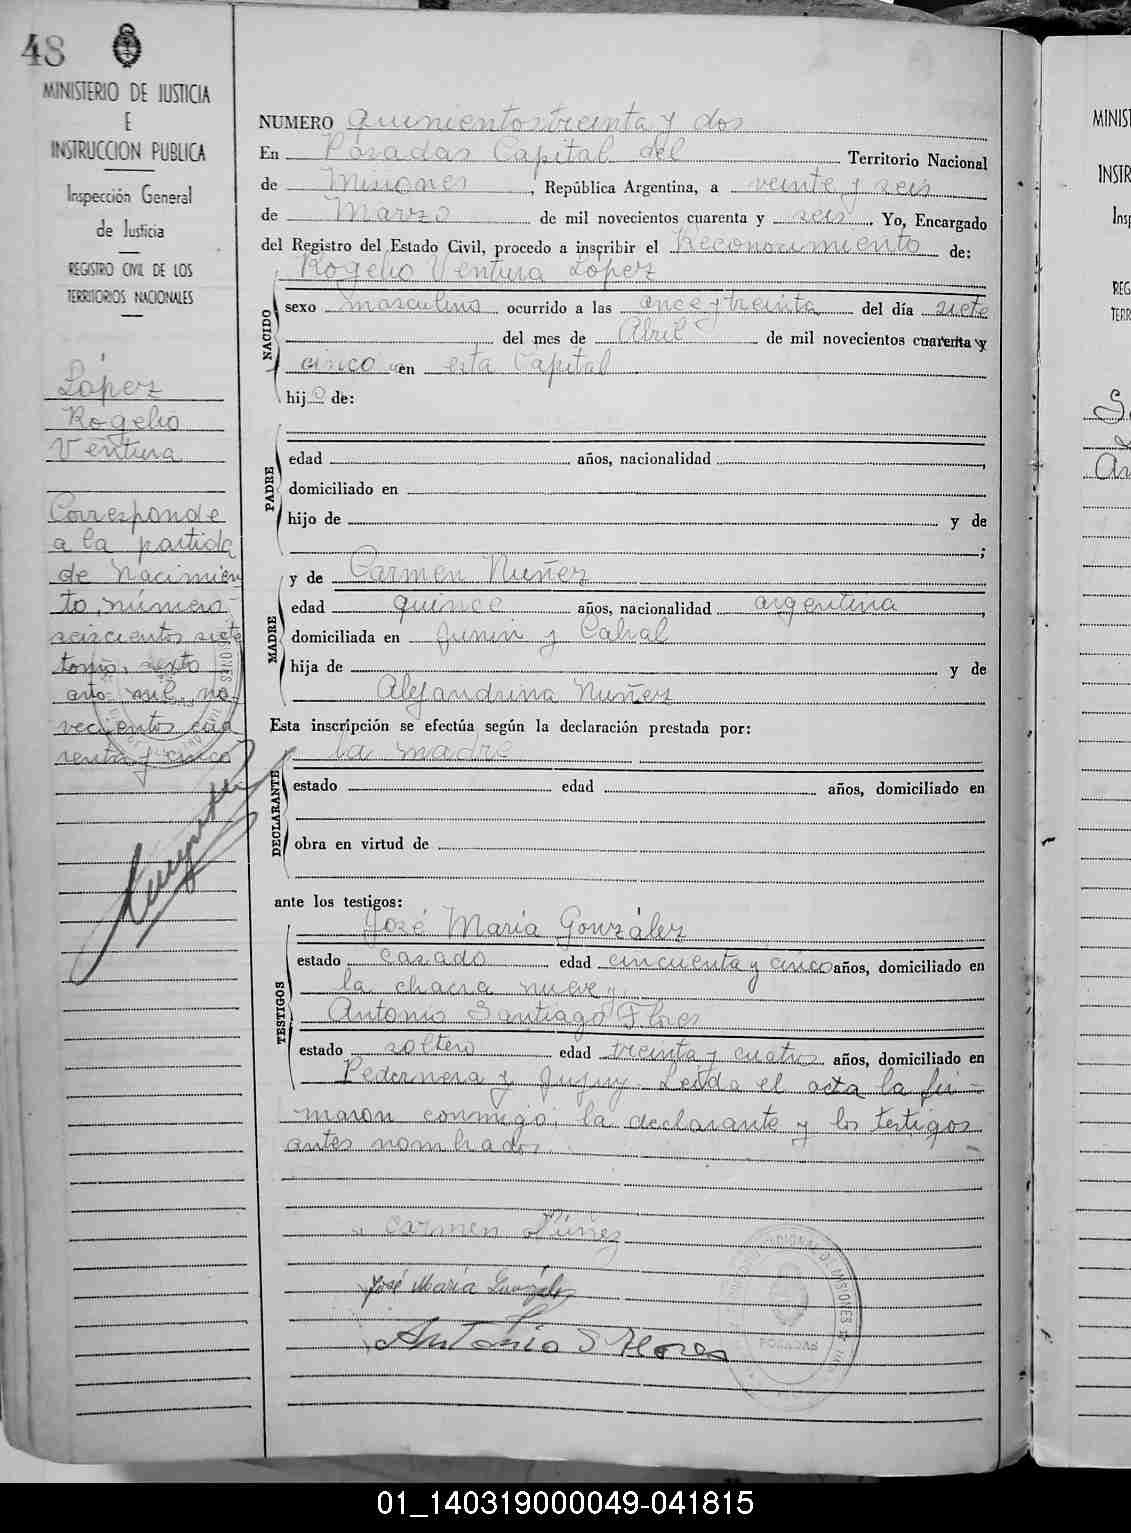 48
MINISTERIO DE JUSTICIA
E
INSTRUCCION PUBLICA
Inspección General
de Justicia
REGISTRO CIVIL DE LOS
TERRITORIOS NACIONALES
Lopez
Rogelio
Ventura
Corresponde
a la partida
de Nacimien
to, número
seiscientos siete
tomo, sexto
año mil no
vecientos cua
renta y cinco
NUMERO Quinientos treinta y dos
En Posadas Capital del Territorio Nacional
de Misiones, República Argentina, a veinte y seis
de Marzo de mil novecientos cuarenta y seis. Yo, Encargado
del Registro del Estado Civil, procedo a inscribir el Reconocimiento de:
Rogelio Ventura Lopez
NACIDO
sexo masculino ocurrido a las once y treinta del día siete
del mes de Abril de mil novecientos cuarenta y
cinco en esta Capital
hijo de:
PADRE
edad años, nacionalidad ,
domiciliado en
hijo de y de
;
MADRE
y de Carmen Nuñez
edad quince años, nacionalidad argentina,
domiciliada en Junin y Cabral
hija de y de
Alejandrina Nuñez
Esta inscripción se efectúa según la declaración prestada por:
la madre
DECLARANTE
estado edad años, domiciliado en
obra en virtud de
ante los testigos:
TESTIGOS
José María González
estado casado edad cincuenta y cinco años, domiciliado en
la chacra nueve y
Antonio Santiago Flores
estado soltero edad treinta y cuatro años, domiciliado en
Pedernera y Jujuy. Leída el acta la fir-
maron conmigo, la declarante y los testigos
antes nombrados.
Carmen Núñez
José María González
Antonio S Flores
MINIS
INSTR
Insp
REG
TERR
01_140319000049-041815